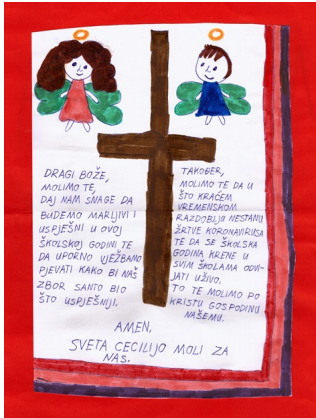 DRAGI BOŽE,
MOLIMO TE,
DAJ NAM SNAGE DA
BUDEMO MARLJIVI I
USPJEŠNI U OVOJ
ŠKOLSKOJ GODINI TE
DA UPORNO VJEŽBAMO
PJEVATI KAKO BI NAŠ
ZBOR SANTO BIO
ŠTO USPJEŠNIJI.
TAKOĐER,
MOLIMO TE DA U
ŠTO KRAĆEM
VREMENSKOM
RAZDOBLJU NESTANU
ŽRTVE KORONAVIRUSA
TE DA SE ŠKOLSKA
GODINA KRENE U
SVIM ŠKOLAMA ODVI-
JATI UŽIVO.
TO TE MOLIMO PO
KRISTU GOSPODINU
NAŠEMU.
AMEN,
SVETA CECILIJO MOLI ZA
NAS.